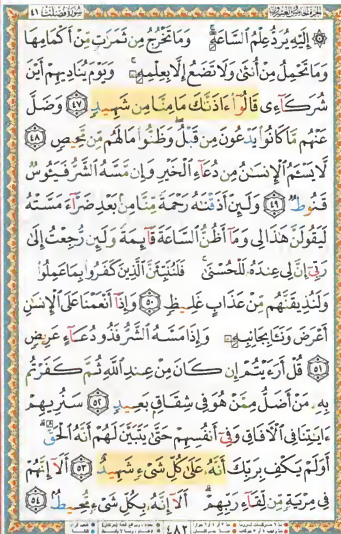 سورة فصلت ٤١
إِلَيْهِ يُرَدُّ عِلْمُ السَّاعَةِ وَمَا تَخْرُجُ مِن ثَمَرَٰتٍ مِّنْ أَكْمَامِهَا
وَمَا تَحْمِلُ مِنْ أُنثَىٰ وَلَا تَضَعُ إِلَّا بِعِلْمِهِ وَيَوْمَ يُنَادِيهِمْ أَيْنَ
شُرَكَاءِى قَالُوا ءَاذَنَّٰكَ مَا مِنَّا مِن شَهِيدٍ ٤٧ وَضَلَّ
عَنْهُم مَّا كَانُوا يَدْعُونَ مِن قَبْلُ وَظَنُّوا مَا لَهُم مِّن مَّحِيصٍ ٤٨
لَّا يَسْـَٔمُ الْإِنسَٰنُ مِن دُعَاءِ الْخَيْرِ وَإِن مَّسَّهُ الشَّرُّ فَيَـُٔوسٌ
قَنُوطٌ ٤٩ وَلَئِنْ أَذَقْنَٰهُ رَحْمَةً مِّنَّا مِن بَعْدِ ضَرَّاءَ مَسَّتْهُ
لَيَقُولَنَّ هَٰذَا لِى وَمَا أَظُنُّ السَّاعَةَ قَائِمَةً وَلَئِن رُّجِعْتُ إِلَىٰ
رَبِّى إِنَّ لِى عِندَهُ لَلْحُسْنَىٰ فَلَنُنَبِّئَنَّ الَّذِينَ كَفَرُوا بِمَا عَمِلُوا
وَلَنُذِيقَنَّهُم مِّنْ عَذَابٍ غَلِيظٍ ٥٠ وَإِذَا أَنْعَمْنَا عَلَى الْإِنسَٰنِ
أَعْرَضَ وَنَـَٔا بِجَانِبِهِ وَإِذَا مَسَّهُ الشَّرُّ فَذُو دُعَاءٍ عَرِيضٍ
٥١ قُلْ أَرَءَيْتُمْ إِن كَانَ مِنْ عِندِ اللَّهِ ثُمَّ كَفَرْتُم
بِهِ مَنْ أَضَلُّ مِمَّنْ هُوَ فِى شِقَاقٍ بَعِيدٍ ٥٢ سَنُرِيهِمْ
ءَايَٰتِنَا فِى الْآفَاقِ وَفِى أَنفُسِهِمْ حَتَّىٰ يَتَبَيَّنَ لَهُمْ أَنَّهُ الْحَقُّ
أَوَلَمْ يَكْفِ بِرَبِّكَ أَنَّهُ عَلَىٰ كُلِّ شَىْءٍ شَهِيدٌ ٥٣ أَلَا إِنَّهُمْ
فِى مِرْيَةٍ مِّن لِّقَاءِ رَبِّهِمْ أَلَا إِنَّهُ بِكُلِّ شَىْءٍ مُّحِيطٌ ٥٤
٤٨٢